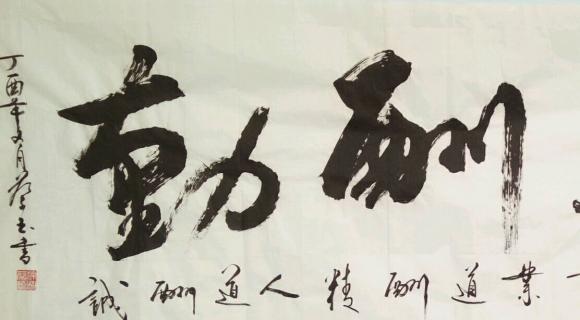 酬勤
業道酬精人道酬誠
丁酉年月书